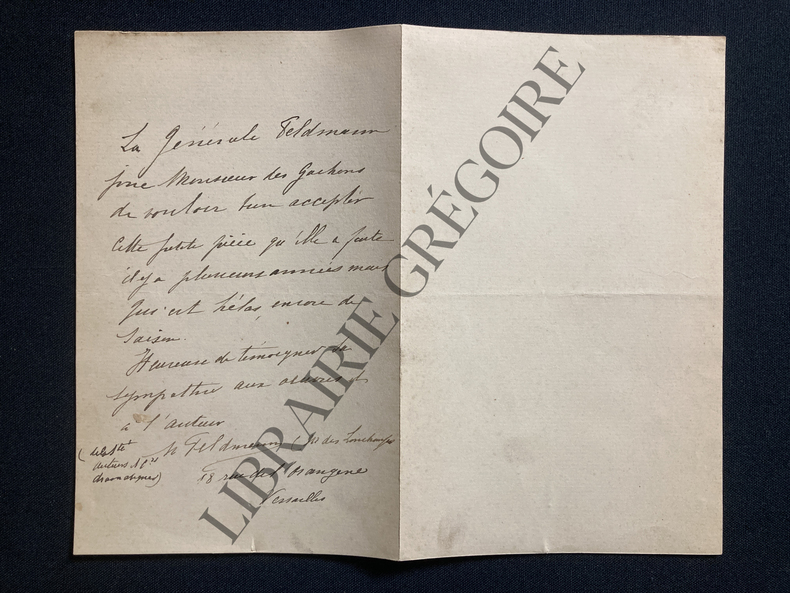 La Générale Feldmann
prie Monsieur des Gachons
de vouloir bien accepter
cette petite pièce qu'elle a faite
il y a plusieurs années mais
qui est hélas, encore de
saison.
Heureuse de témoigner sa
sympathie aux œuvres et
à l'auteur
M Feldmann
(de la Sté
auteurs
dramatiques)
18 rue de l'Orangerie
Versailles
LIBRAIRIE GRÉGOIRE